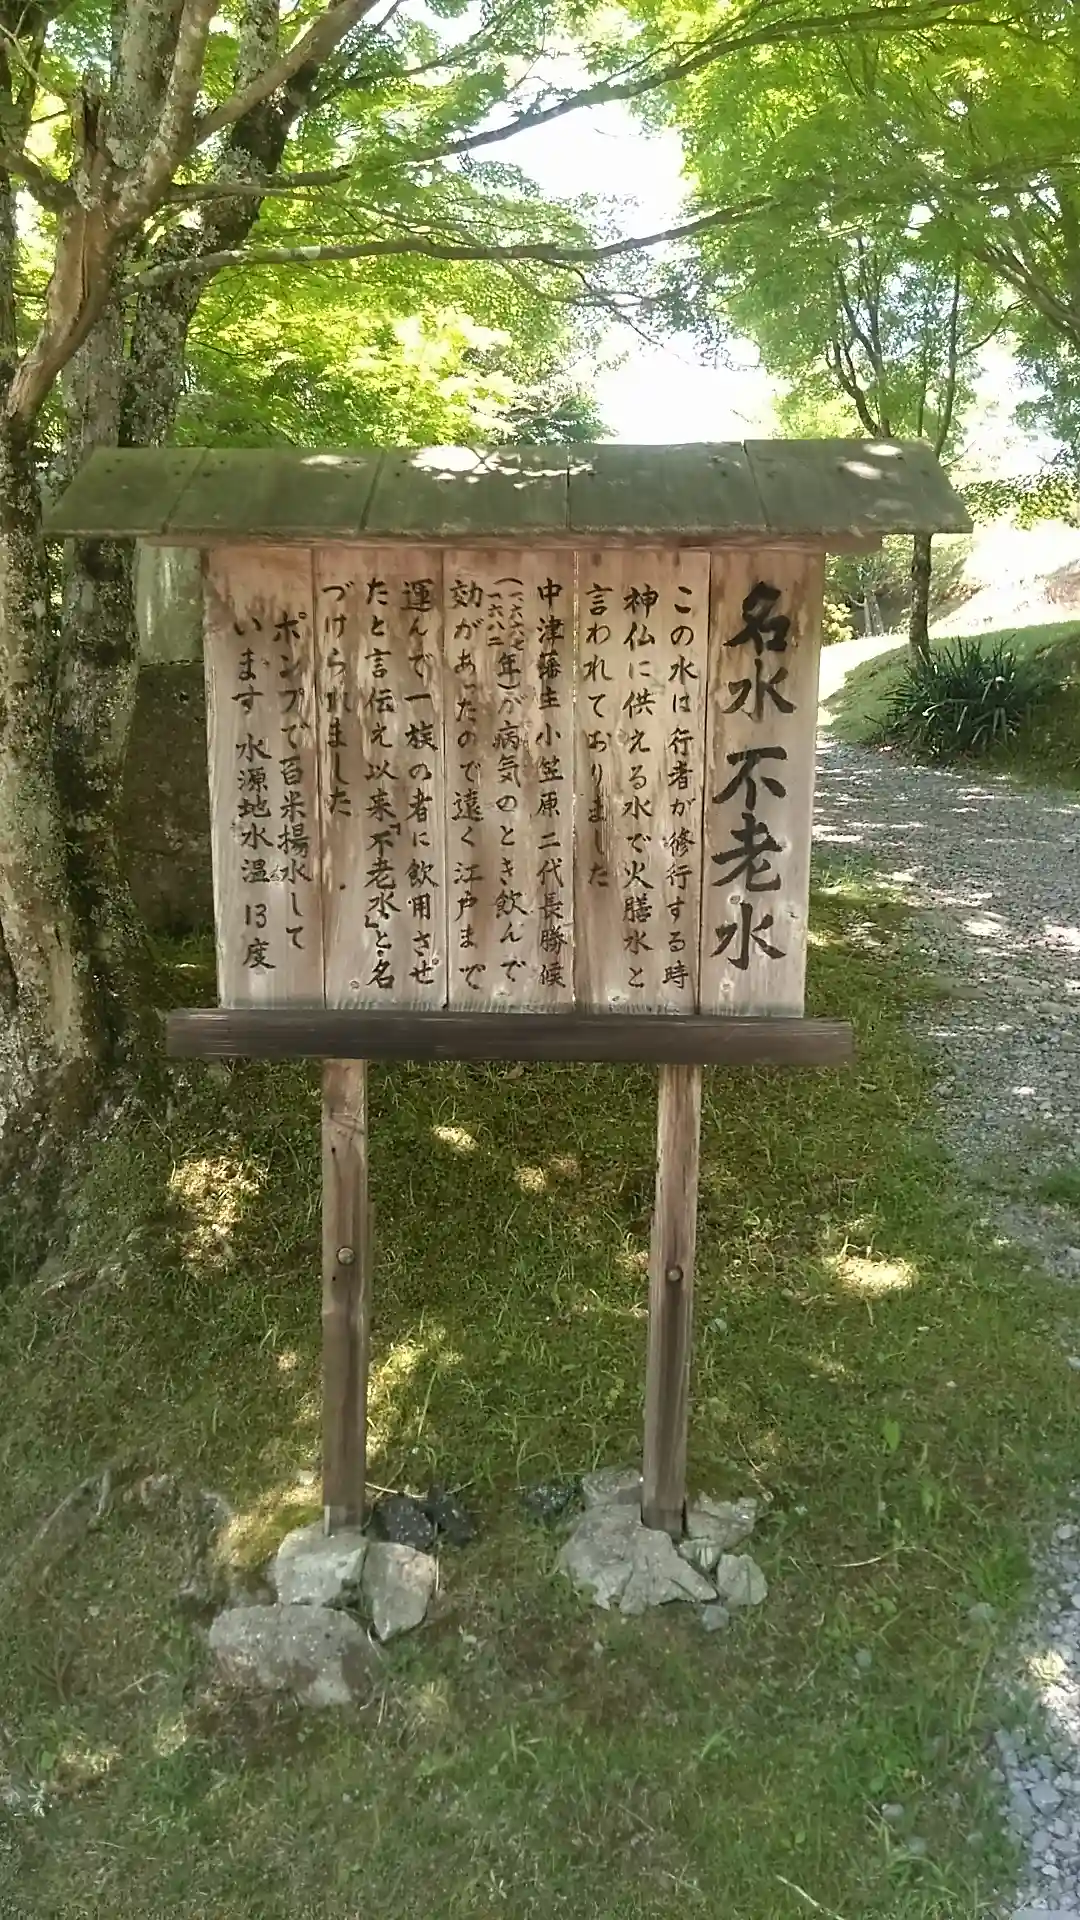 名水 不老水
この水は行者が修行する時
神仏に供える水で火膳水と
言われておりました
中津藩主小笠原二代長勝候
年)が病気のとき飲んで
効があったので遠く江戸まで
運んで一族の者に飲用させ
たと言伝え以来「不老水」と名
づけられました。
ポンプで百米揚水して
います 水源地水温 13度